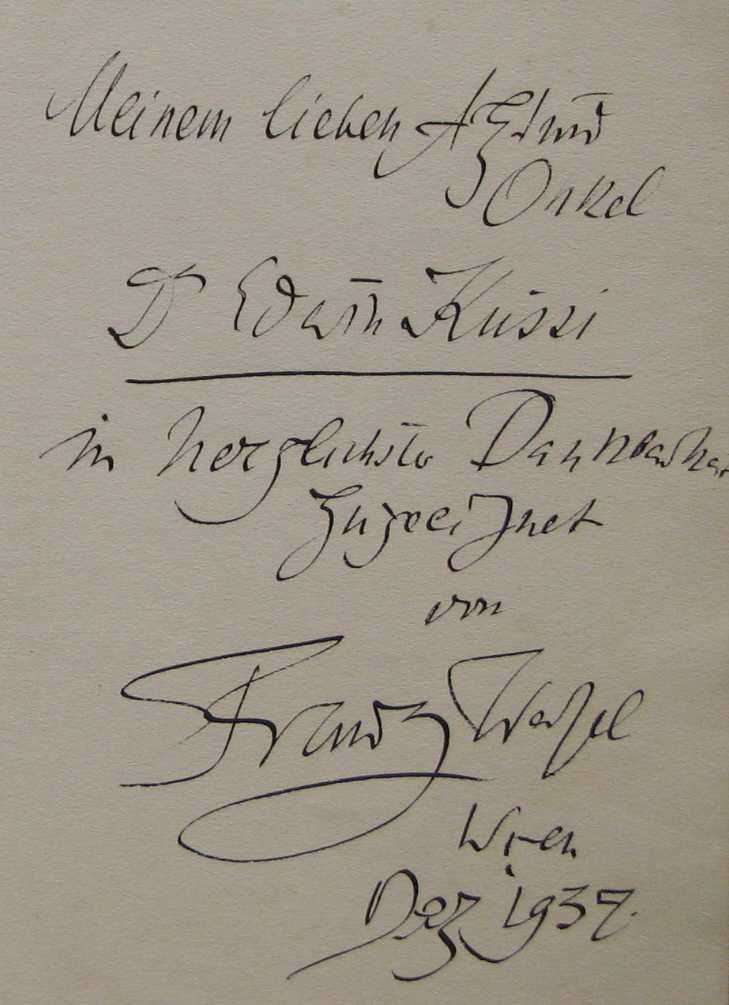 Meinem lieben Arzt und
Onkel
Dr Edwin Kussi
in herzlichster
zugeeignet
von
Franz Werfel
Wien
Dez 1937.